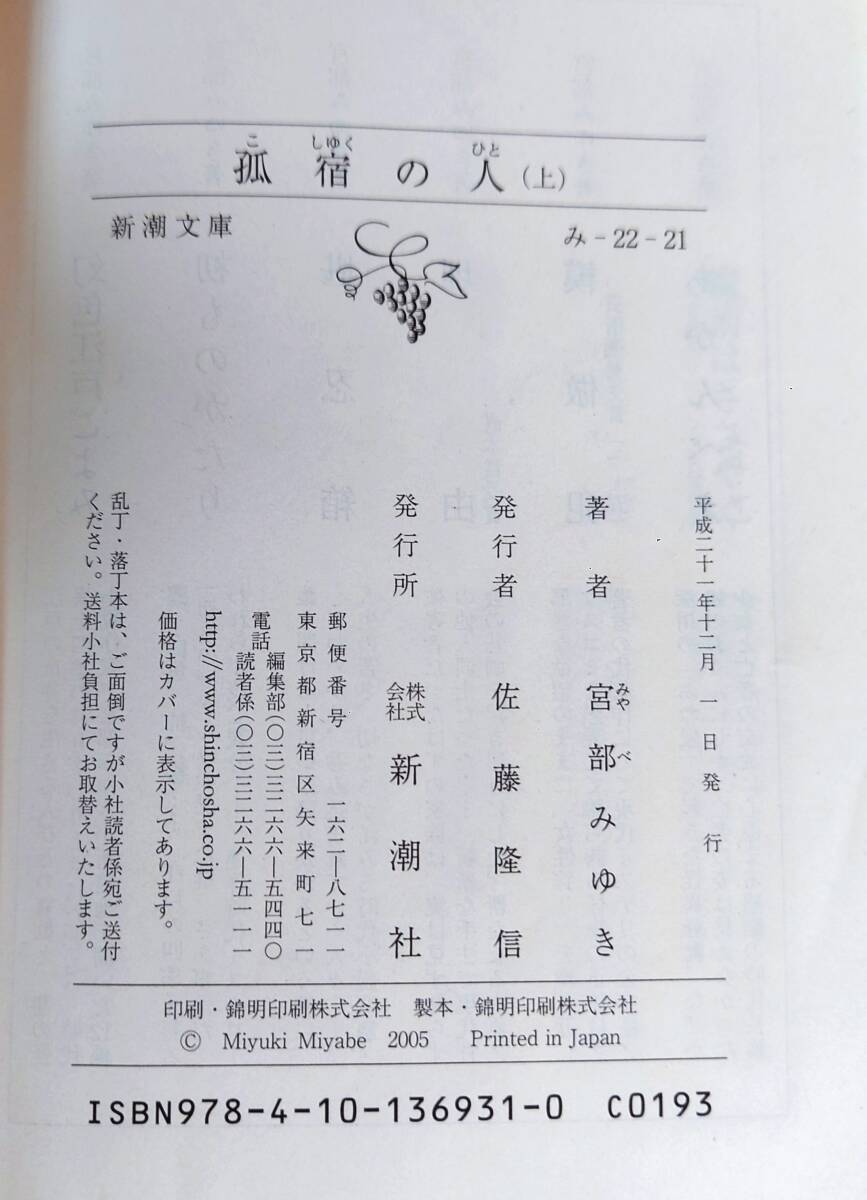 孤宿の人(上)
新潮文庫
み-22-21
平成二十一年十二月一日発行
著者 宮部みゆき
発行者 佐藤隆信
発行所 株式会社 新潮社
郵便番号 一六二―八七一一
東京都新宿区矢来町七一
電話 編集部(〇三)三二六六―五四四〇
読者係(〇三)三二六六―五一一一
http://www.shinchosha.co.jp
価格はカバーに表示してあります。
乱丁・落丁本は、ご面倒ですが小社読者係宛ご送付
ください。送料小社負担にてお取替えいたします。
印刷・錦明印刷株式会社 製本・錦明印刷株式会社
© Miyuki Miyabe 2005 Printed in Japan
ISBN978-4-10-136931-0 C0193